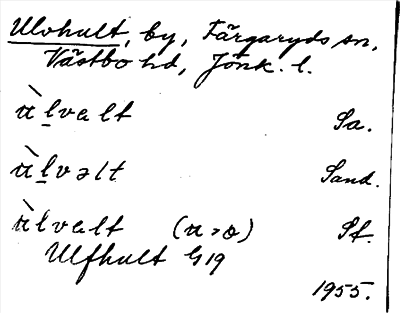 Ulvhult, by, Färgaryds sn,
Västbo hd, Jönk. l.
ùlvalt Sa.
ùlvəlt Sand.
ùlvalt (u > o) Sf.
Ulfhult G19
1955.